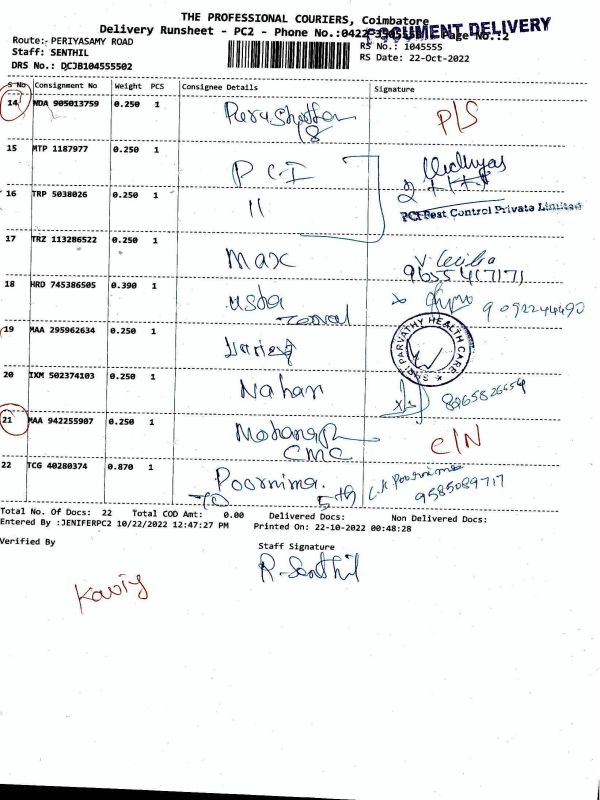 THE PROFESSIONAL COURIERS, Coimbatore
DOCUMENT DELIVERY
Delivery Runsheet - PC2 - Phone No.:0422 Page No.:2
Route:- PERIYASAMY ROAD
RS No.: 1045555
Staff: SENTHIL
RS Date: 22-Oct-2022
DRS No.: DCJB104555502
S No Consignment No Weight PCS Consignee Details Signature
14 NDA 905013759 0.250 1 P/S
15 MTP 1187977 0.250 1 P C I
16 TRP 5038026 0.250 1 11
PCI Pest Control Private Limited
17 TRZ 113286522 0.250 1 Max V. Cecilia
9655417171
18 HRD 745386505 0.390 1 usha
9092244490
SHRI PARVATHY HEALTH CARE
19 MAA 295962634 0.250 1
20 IXM 502374103 0.250 1 Nahar 8265826654
21 MAA 942255907 0.250 1 C/N
CMC
22 TCG 40280374 0.870 1 Poornima. 5th L.K Poornima
9585089717
Total No. Of Docs: 22 Total COD Amt: 0.00 Delivered Docs: Non Delivered Docs:
Entered By :JENIFERPC2 10/22/2022 12:47:27 PM Printed On: 22-10-2022 00:48:28
Verified By Staff Signature
R. Senthil
Kaviy